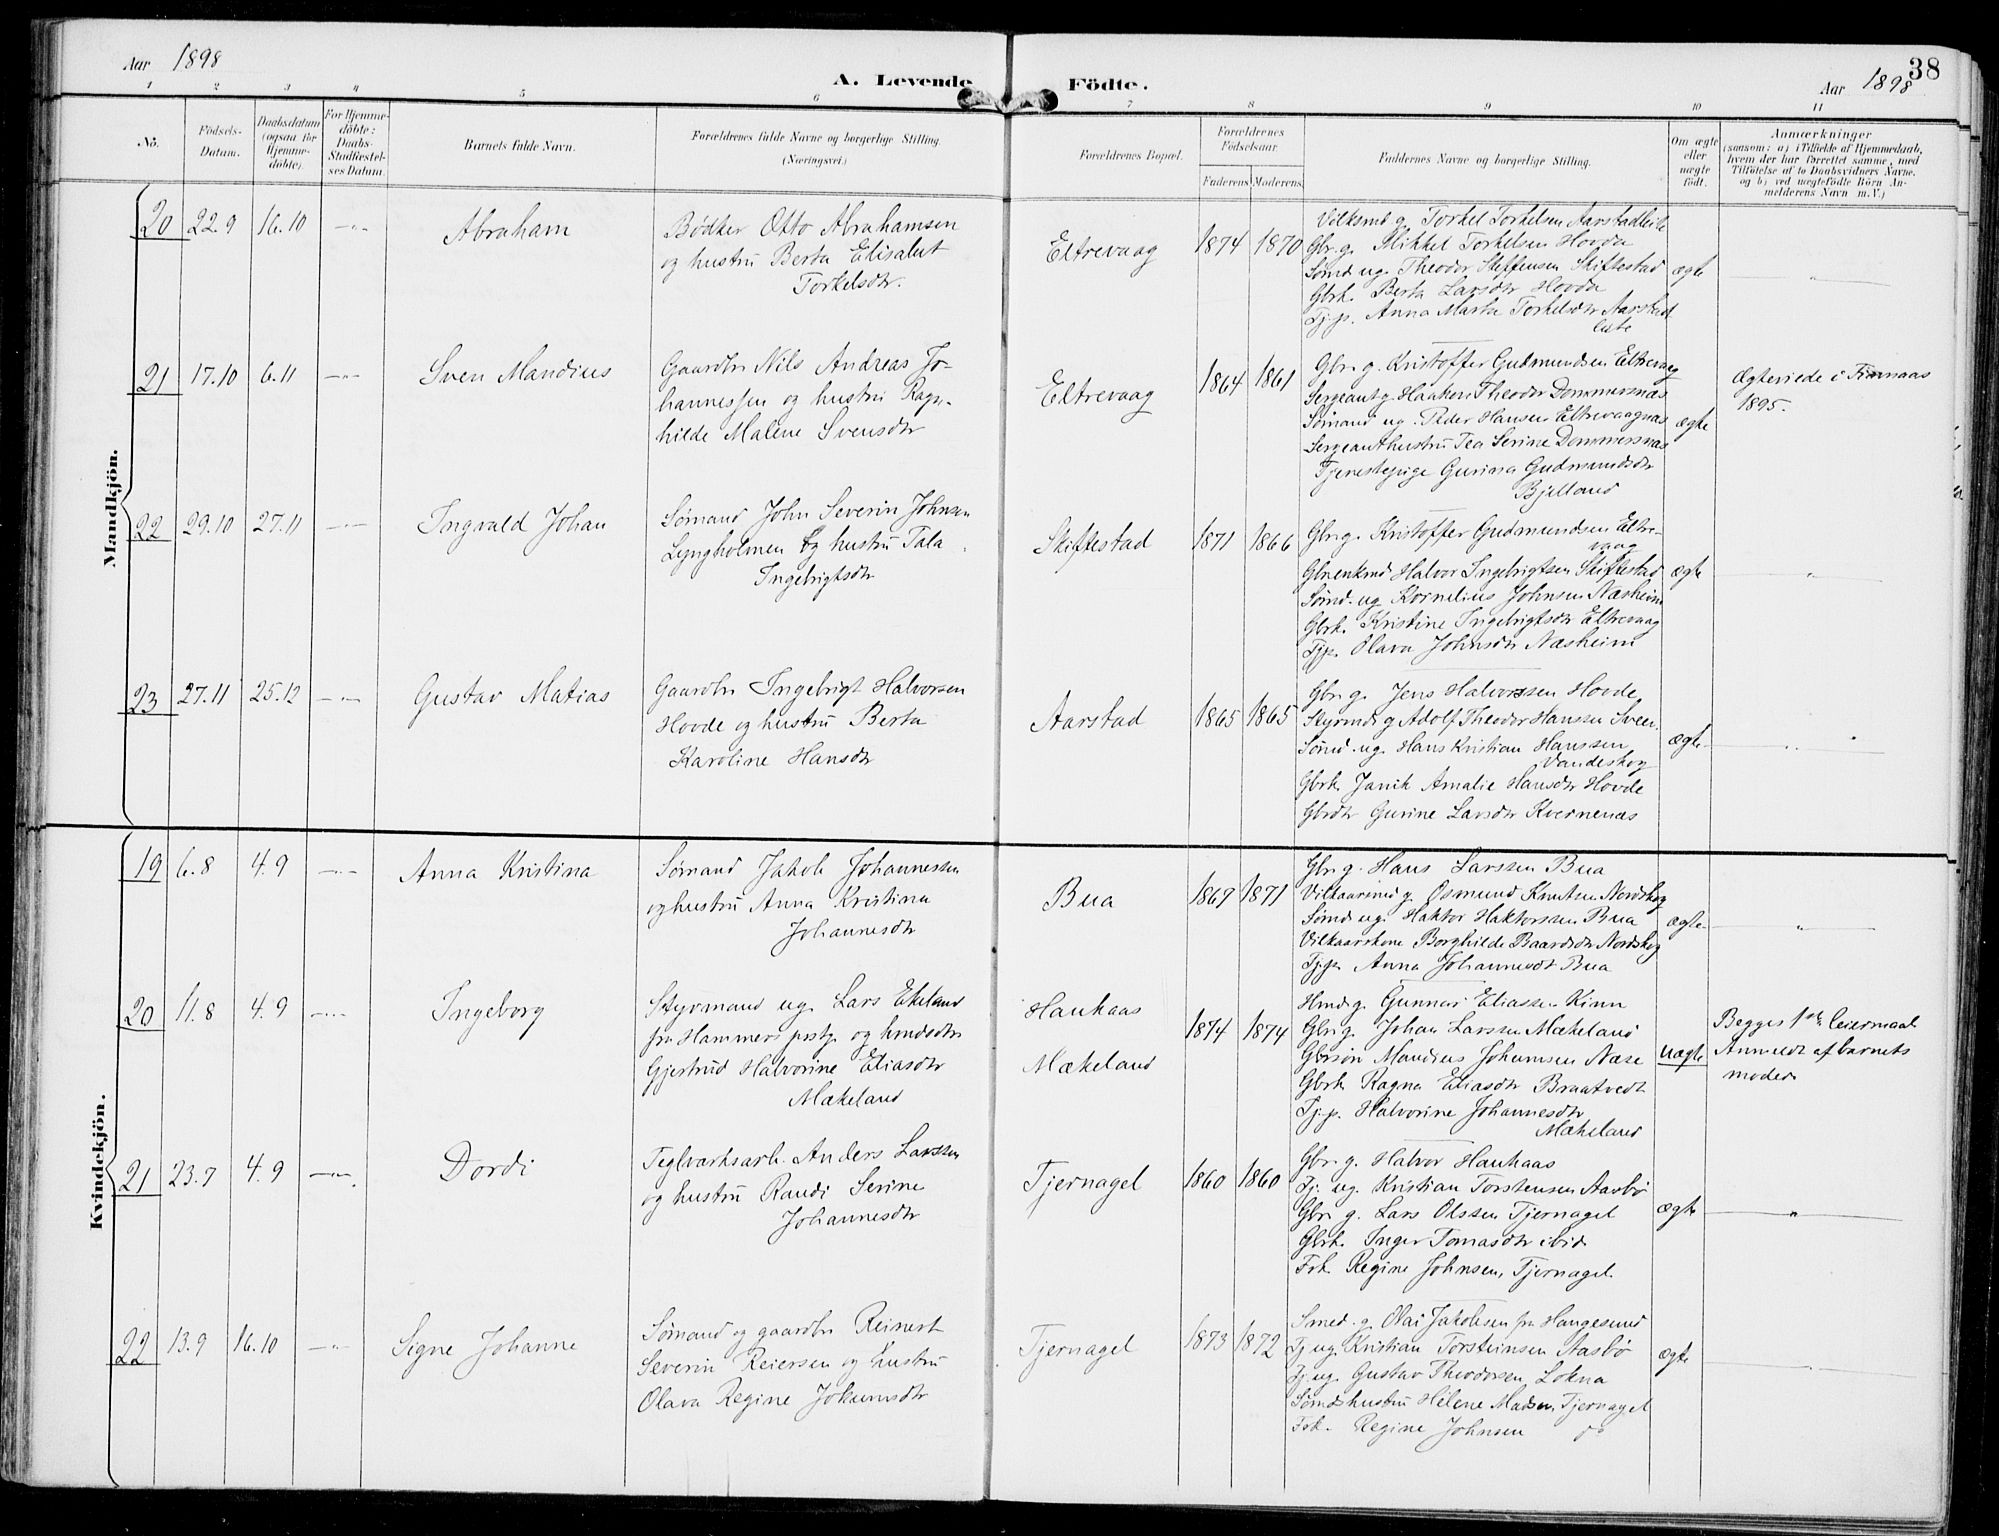 Aar 1898
A. Levende Födte.
Aar 1898
38
1 2 3 4 5 6 7 8 9 10 11
No.
Födsels-Datum.
Daabsdatum (ogsaa for Hjemmedöbte).
For Hjemmedöbte: Daabs-Stadfæstelses Datum.
Barnets fulde Navn.
Forældrenes fulde Navne og borgerlige Stilling.
(Næringsvei.)
Forældrenes Bopæl.
Forældrenes Födselsaar.
Faderens. Moderens.
Faddernes Navne og borgerlige Stilling.
Om ægte eller uægte födt.
Anmærkninger
(saasom: a) i Tilfælde af Hjemmedaab,
hvem der har forrettet samme, med
Tilföielse af to Daabsvidners Navne,
og b) ved uægtefödte Börn An-
melderens Navn m. V.)
Mandkjön.
20 22.9 16.10 —"—
Abraham
Bødker Otto Abrahamsen
og hustru Berta Elisabet
Torkelsdtr.
Eltrevaag
1874 1870
Vilksmd g. Torkel Torkelsen Aarstadleite
Gbr. g. Mikkel Torkelsen Hovda
Sømd ug. Theodor Steffensen Skiftestad
Gbrk. Berta Larsdtr Hovda
Tj.p. Anna Marta Torkelsdtr Aarstad
leite
ægte
—"—
21 17.10 6.11 —"—
Sven Mandius
Gaardbr Nils Andreas Jo-
hannessen og hustru Ragn-
hilde Malene Svensdtr
Eltrevaag
1864 1861
Gbr. g. Kristoffer Gudmundsen Eltrevaag
Sergeant g. Haakon Theodor Dommersnæs
Sømand ug. Peder Hansen Eltrevaagnæs
Sergeanthustru Tea Serine Dommersnæs
Tjenestepige Gurina Gudmundsdtr
Bjelland
ægte
Ægteviede i Finnaas
1895.
22 29.10 27.11 —"—
Ingvald Johan
Sømand John Severin Johnsen
Lyngholmen og hustru Tala
Ingebrigtsdtr
Skiftestad
1871 1866
Gbr. g. Kristoffer Gudmundsen Eltre-
vaag
Gbrenkmd Halvor Ingebrigtsen Skiftestad
Sømd. ug. Kornelius Johnsen Næsheim
Gbrk. Kristine Ingebrigtsdtr Eltrevaag
Tjp. Olava Johnsdtr Næsheim
ægte
—"—
23 27.11 25.12 —"—
Gustav Matias
Gaardbr Ingebrigt Halvorsen
Hovde og hustru Berta
Karoline Hansdtr
Aarstad
1865 1865
Gbr. g. Jens Halvorssen Hovde
Styrmd g. Adolf Theodor Hanssen Sveen.
Sømd. ug. Hans Kristian Hanssen
Vandeskog
Gbrk. Janik Amalie Hansdtr Hovde
Gbrdtr Gurine Larsdtr Kvernenæs
ægte
—"—
Kvindekjön.
19 6.8 4.9 —"—
Anna Kristina
Sømand Jakob Johannessen
og hustru Anna Kristina
Johannesdtr
Bua
1869 1871
Gbr. g. Hans Larssen Bua
Vilkaarsmd g. Osmund Knutsen Nordskog
Sømd ug. Haktor Haktorssen Bua
Vilkaarskone Borghilde Baardsdtr Nordskog
Tj.p. Anna Johannesdtr Bua
ægte
—"—
20 11.8 4.9 —"—
Ingeborg
Styrmand ug. Lars Ekeland
fra Hammers pstgj. og hmdsdtr
Gjertrud Halvorine Eliasdtr
Mækeland
Haukaas
Mækeland
1874 1874
Hmd g. Gunnar Eliassen Kinn
Gbr. g. Johan Larssen Mækeland
Gbrsøn Mandius Johansen Næse
Gbrk Ragna Eliasdtr Braatvedt
Tj.p. Halvorine Johannesdtr
Mækeland
uægte
Begges 1ste leiermaal
Anmeldt af barnets
moder
21 23.7 4.9 —"—
Dordi
Teglværksarb. Anders Larssen
og hustru Randi Serine
Johannesdtr
Tjernagel
1860 1860
Gbr. g. Halvor Haukaas
Tj. ug. Kristian Torstensen Aasbø
Gbr g. Lars Olssen Tjernagel
Gbrk. Inger Tomasdtr ibid
Frk Regine Johnsen, Tjernagel
ægte
—"—
22 13.9 16.10 —"—
Signe Johanne
Sømand og gaardbr Reinert
Severin Reiersen og hustru
Olava Regine Johansdtr
Tjernagel
1873 1872
Smed. g. Olai Jakobsen fra Haugesund
Tj. ug. Kristian Torsteinsen Aasbø
Tj. ug. Gustav Theodorsen, Lokna
Sømdshustru Helene Madsen, Tjernagel
Frk. Regine Johnsen do
ægte
—"—